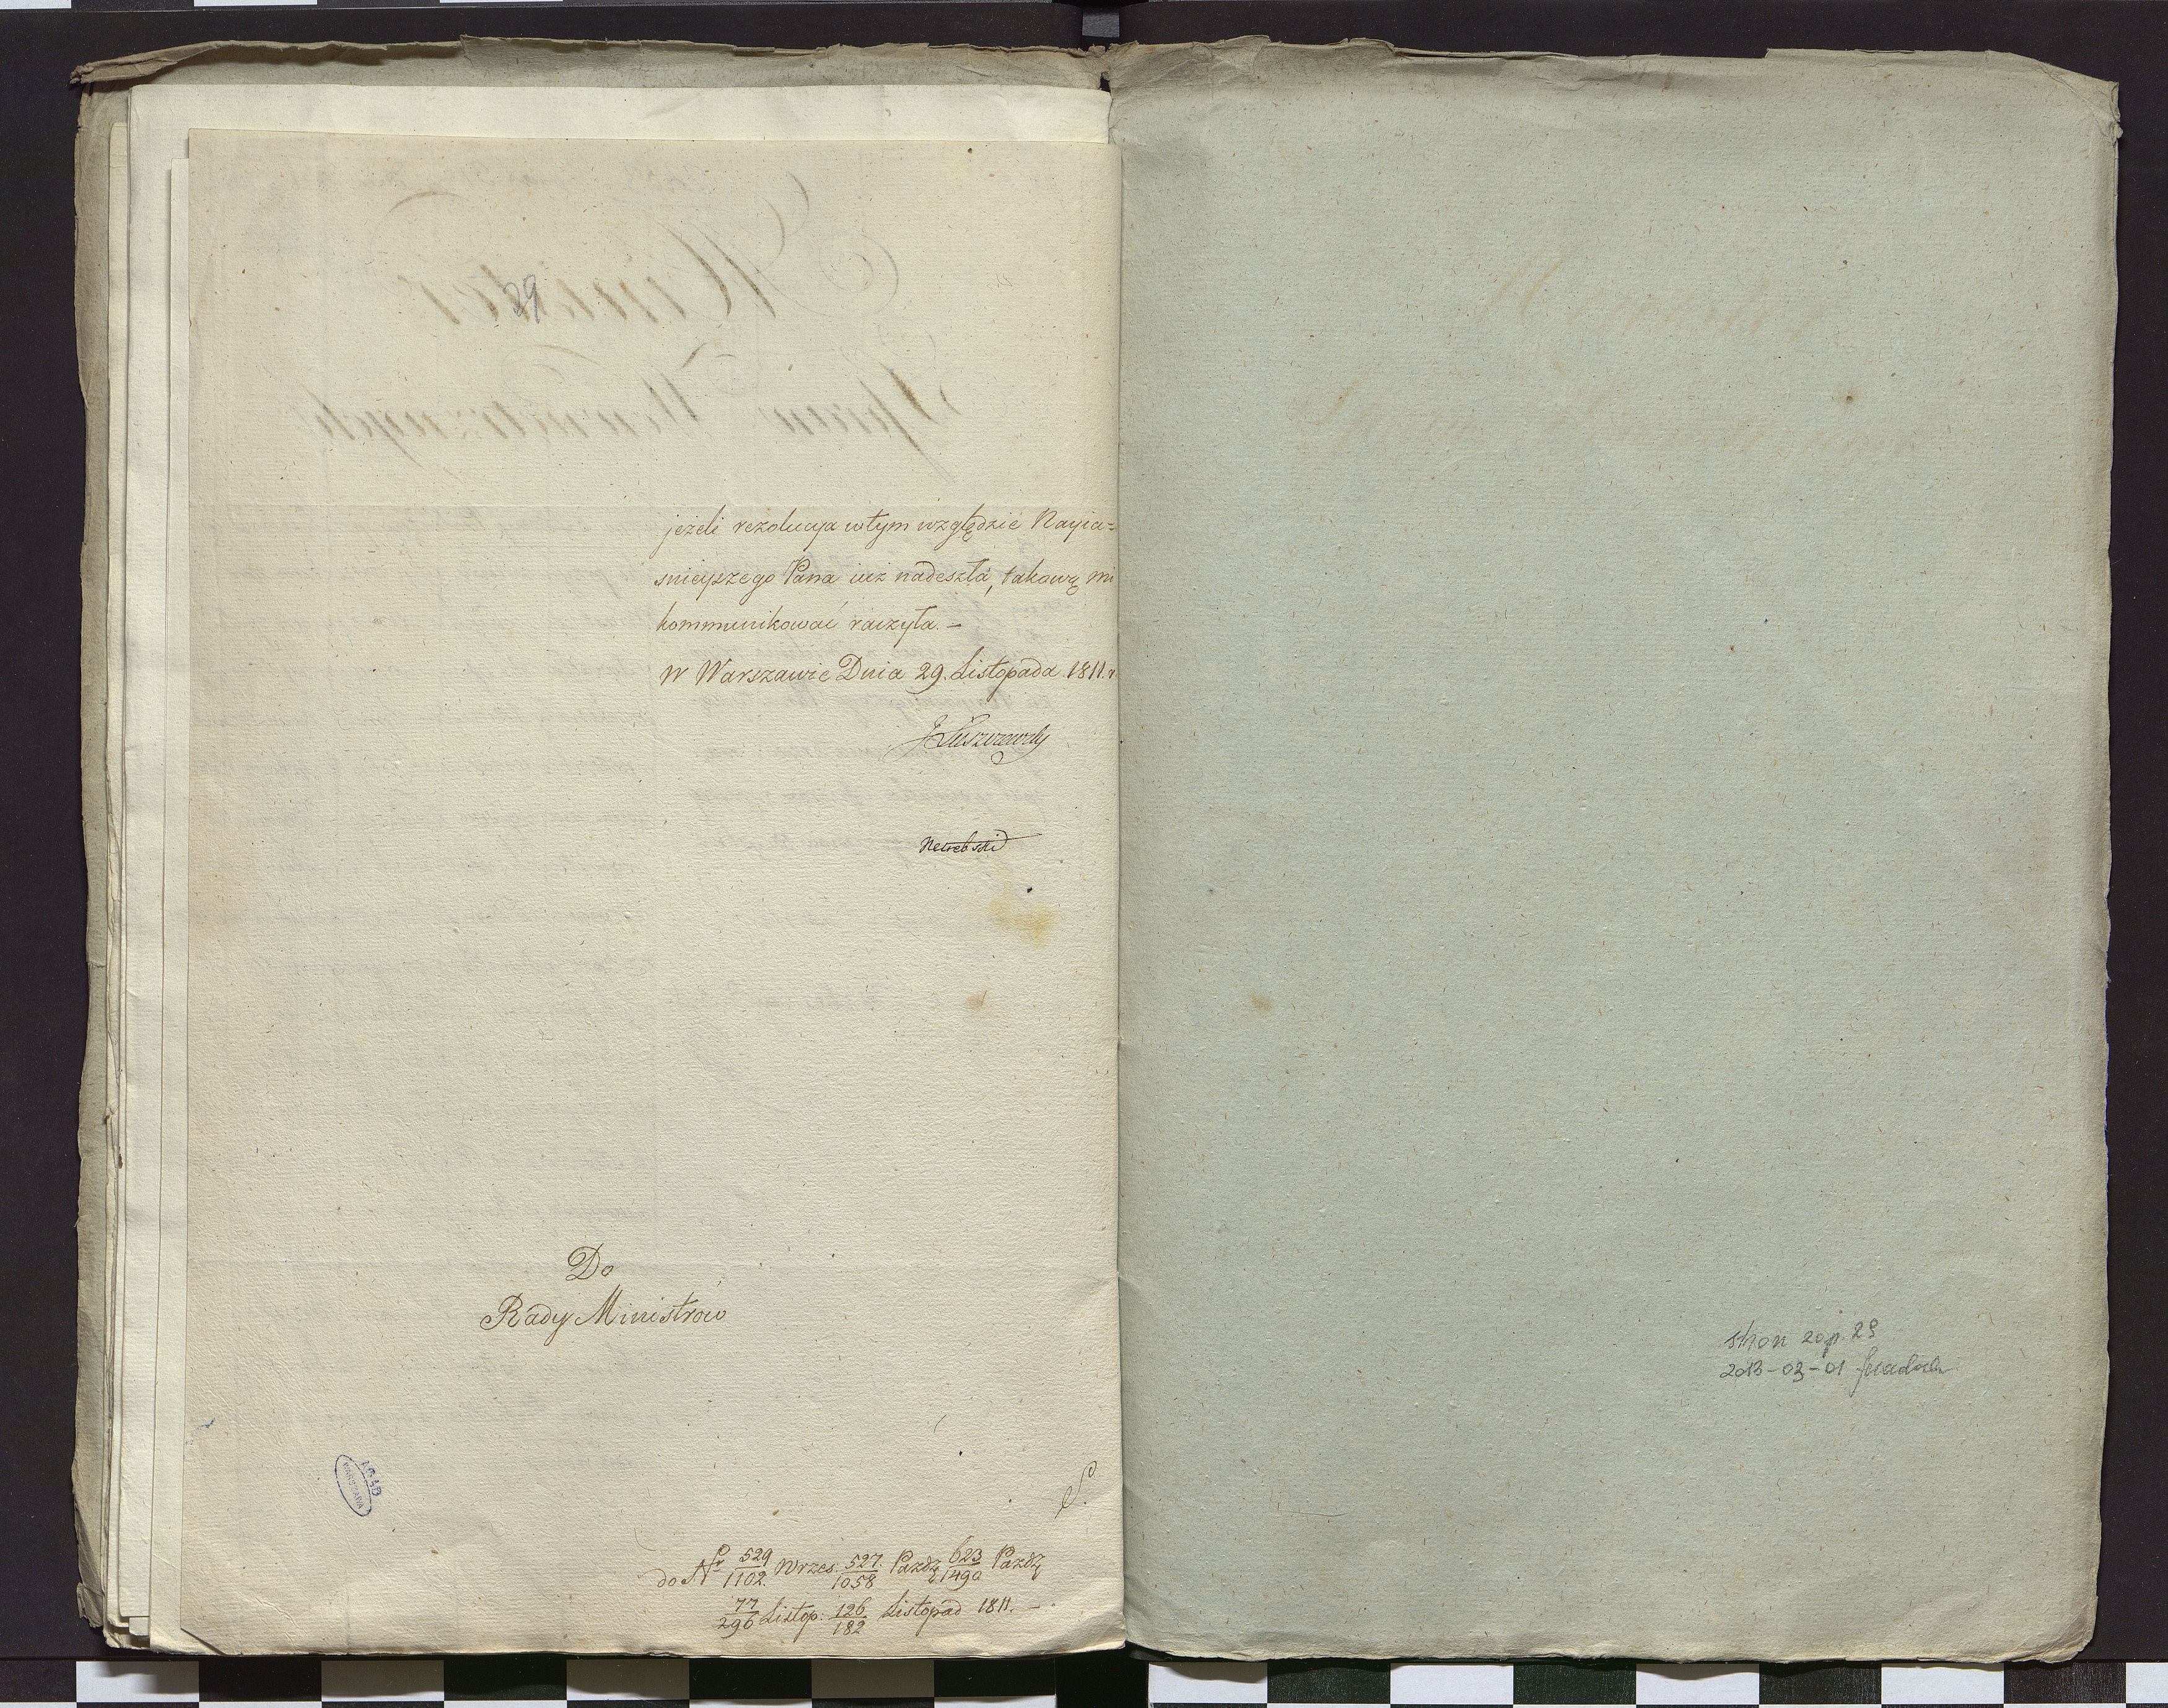 jeżeli rezolucya w tym względzie Nayia=
snieyszego Pana iuż nadeszła, takową mi
kommunikować raczyła. –
w Warszawie Dnia 29. Listopada 1811. r
J Łuszczewsky
Do
Rady Ministrow
S.
do Nr 529/1102 Wrzes. 527/1058 Paźdź 623/1490 Paźdź
77/296 Listop. 126/182 Listopad 1811. –
AGAD
WARSZAWA
stron zap. 29
2013-03-01